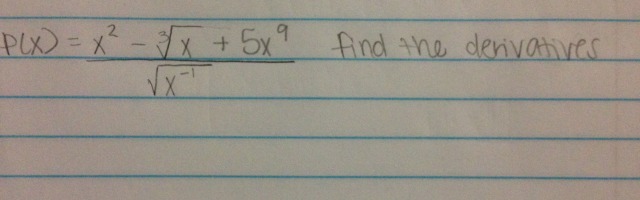 P(x) = x² - ∛x + 5x⁹ find the derivatives
√x⁻¹